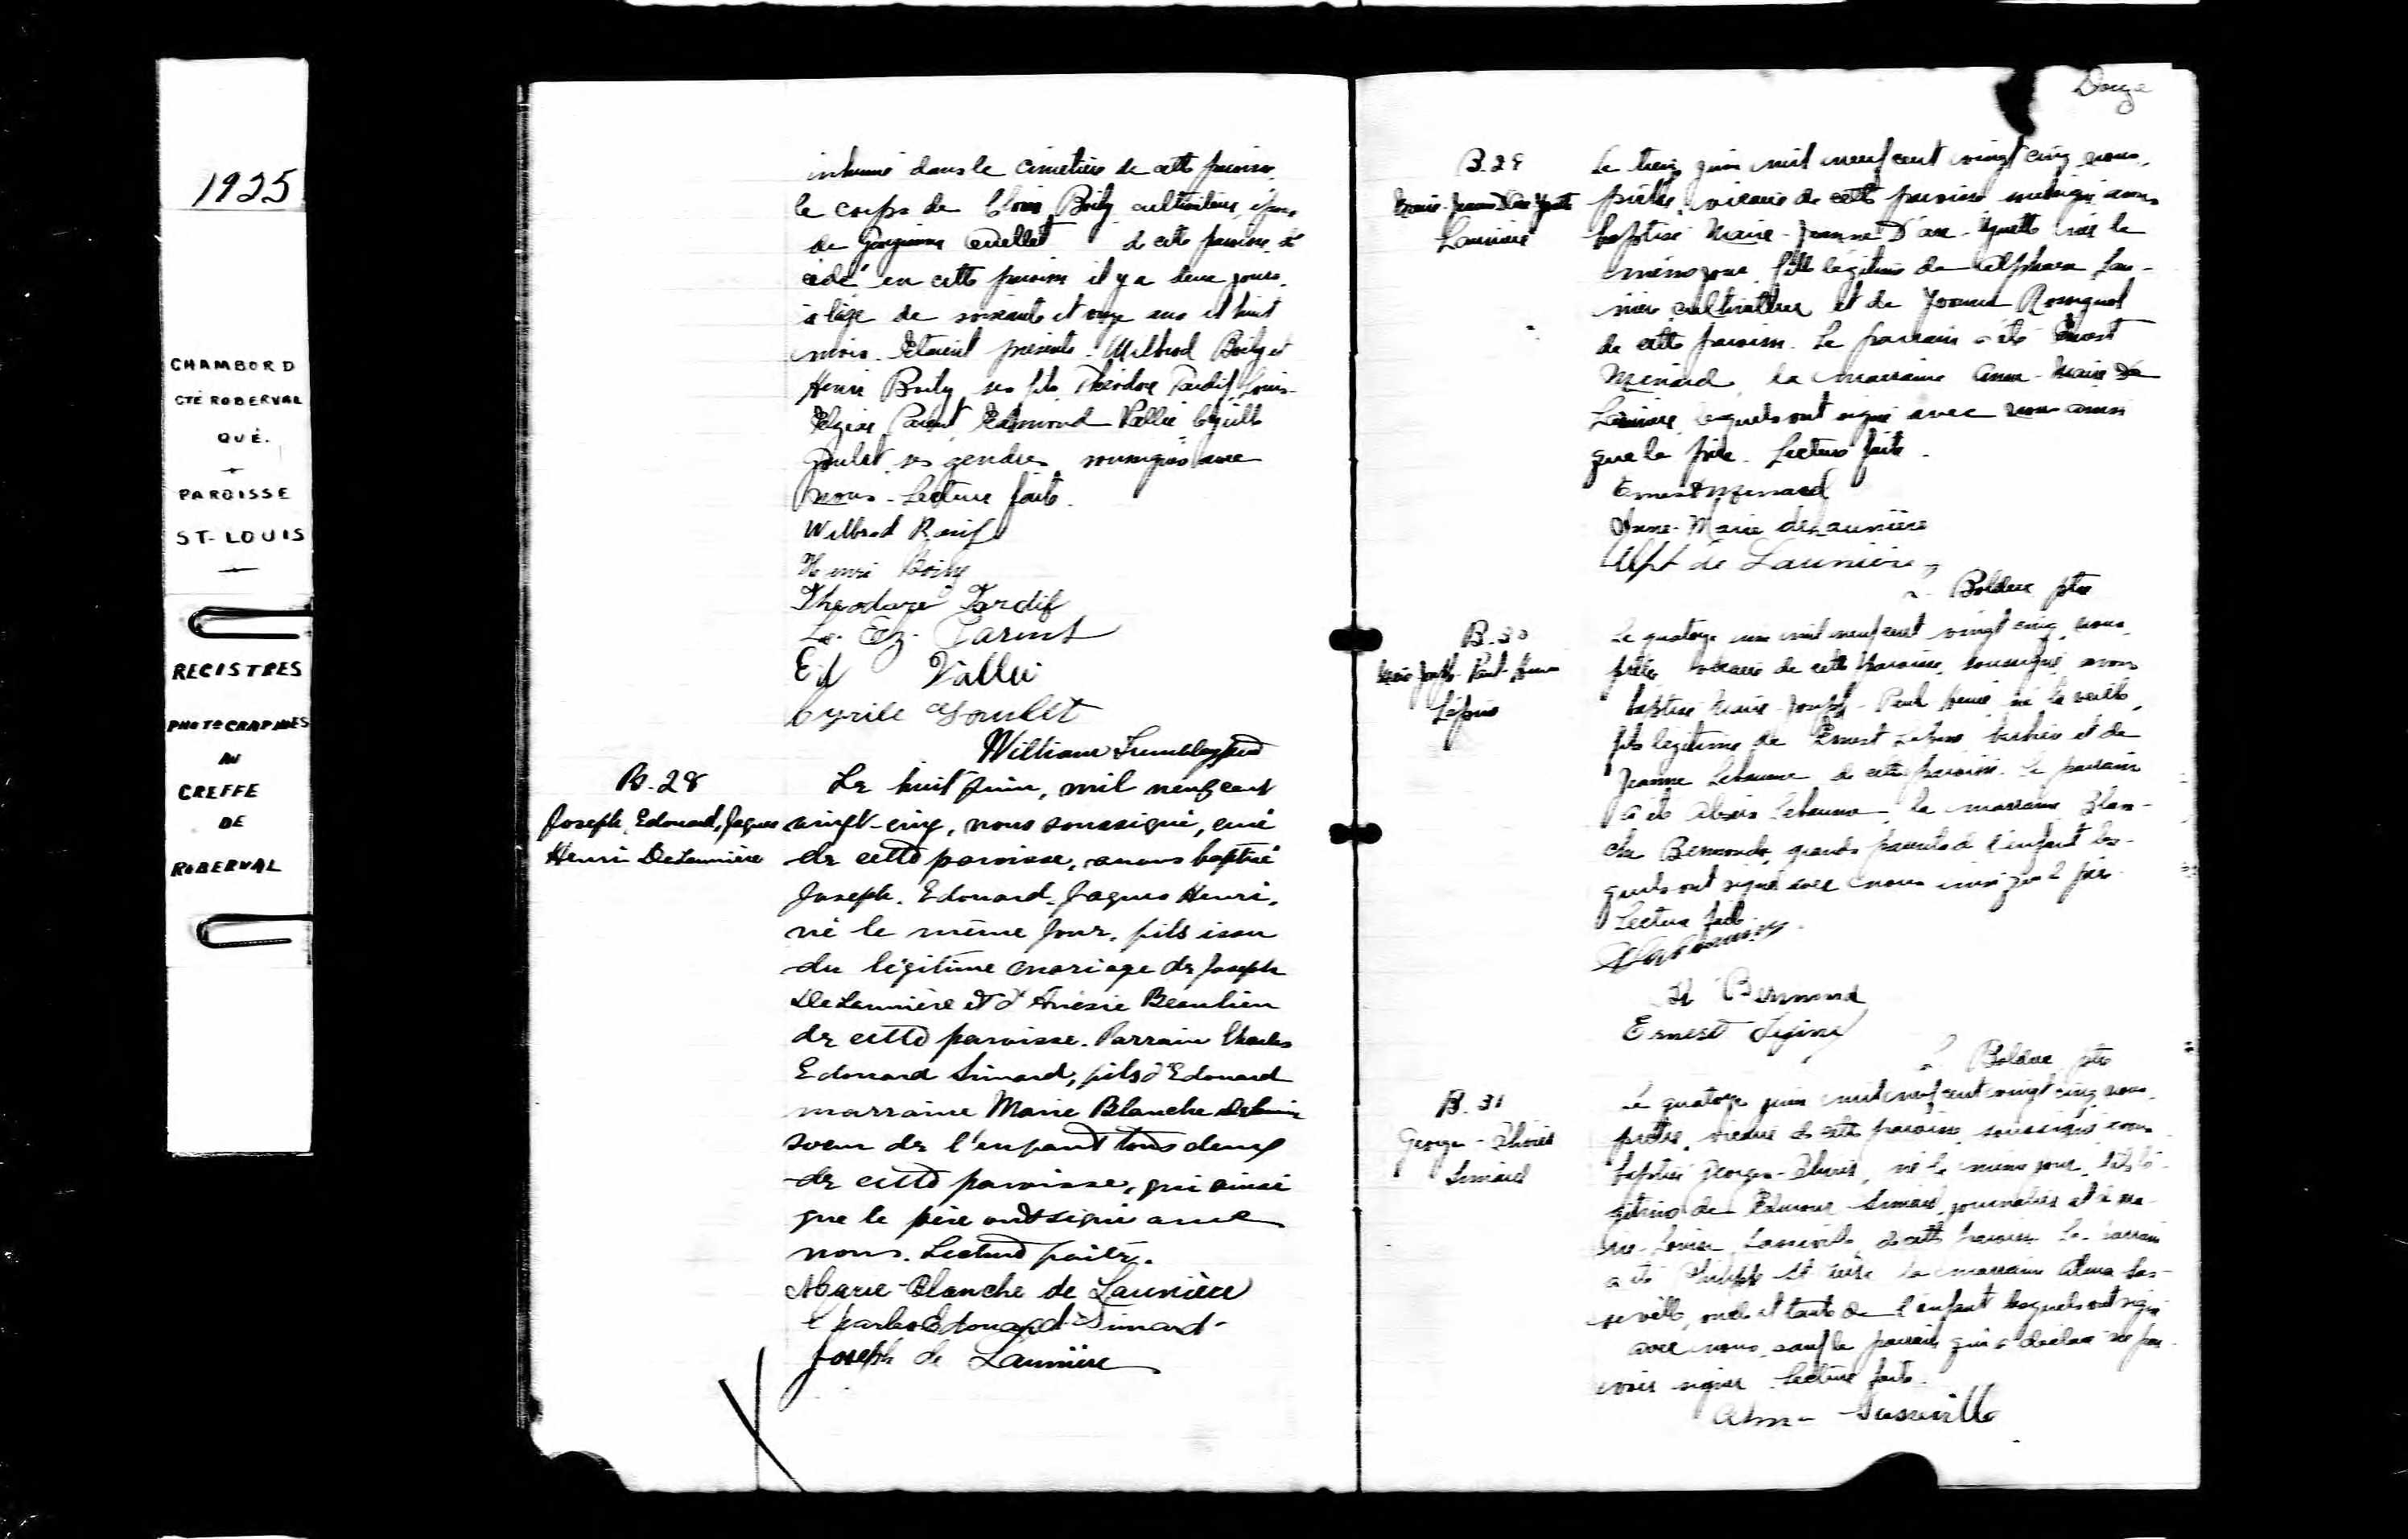 1925
CHAMBORD
CTÉ ROBERVAL
QUÉ.
PAROISSE
ST-LOUIS
REGISTRES
PHOTOGRAPHIÉS
AU
GREFFE
DE
ROBERVAL
inhumé dans le cimetière de cette paroisse
le corps de Boily cultivateur, époux
de Ouellet de cette paroisse, dé
cédé en cette paroisse il y a deux jours,
à l'âge de soixante et onze ans et huit
mois. Etaient présents: Wilbrod Boily et
Henri Boily, ses fils, Théodore Tardif, Louis-
Elzéar Parent, Edmond Vallée, Cyrille
Goulet, ses gendres, soussignés avec
nous. Lecture faite.
Wilbrod
Henri Boily
Theodore Tardif
Ls. Elz. Parent
Ed Vallée
Cyrille Goulet
William Tremblay ptre
B. 28
Joseph, Edouard, Jaques
Henri DeLaunière
Le huit juin, mil neuf cent
vingt-cinq, nous soussigné, curé
de cette paroisse, avons baptisé
Joseph. Edouard. Jaques Henri,
né le même jour, fils issu
du légitime mariage de Joseph
DeLaunière et d'Anésie Beaulieu
de cette paroisse. Parrain Charles
Edouard Simard, fils d'Edouard
marraine Marie Blanche
soeur de l'enfant tous deux
de cette paroisse, qui ainsi
que le père ont signé avec
nous. Lecture faite.
Marie-Blanche de Launière
Charles Edouard Simard
Joseph de Launière
Douze
B. 29
Marie-Jeanne D'Arc
Launière
Le treize juin mil neuf cent vingt cinq, nous,
prêtre, vicaire de cette paroisse soussigné avons
baptisé Marie-Jeanne D'arc- née le
même jour, fille légitime de Alphonse Lau-
nière cultivateur et de Yvonne Rossignol
de cette paroisse. Le parrain a été Ernest
Ménard, la marraine Anne-Marie De
Launière, lesquels ont signé avec nous ainsi
que le père. Lecture faite.
Ernest Menard
Anne-Marie deLaunière
Alph de Launière
Bolduc ptre
B. 30
Marie Joseph-Paul-Henri
Lépine
Le quatorze juin mil neuf cent vingt cinq, nous,
prêtre vicaire de cette paroisse, soussigné avons
baptisé Marie-Joseph-Paul Henri, né la veille,
fils légitime de Ernest Lépine, et de
Jeanne de cette paroisse. Le parrain
a été la marraine Blan-
che grands parents de l'enfant les-
quels ont signé avec nous ainsi que le père.
Lecture faite.
Ernest Lépine
Bolduc ptre
B. 31
Georges-
Simard
Le quatorze juin mil neuf cent vingt cinq, nous,
prêtre, vicaire de cette paroisse, soussigné avons
baptisé Georges- né le même jour, fils lé-
gitime de Simard, journalier et de Ma-
rie-Louise de cette paroisse. Le parrain
a été la marraine Alma
oncle et tante de l'enfant lesquels ont signé
avec nous, sauf le parrain qui a déclaré ne pou-
voir signer. Lecture faite.